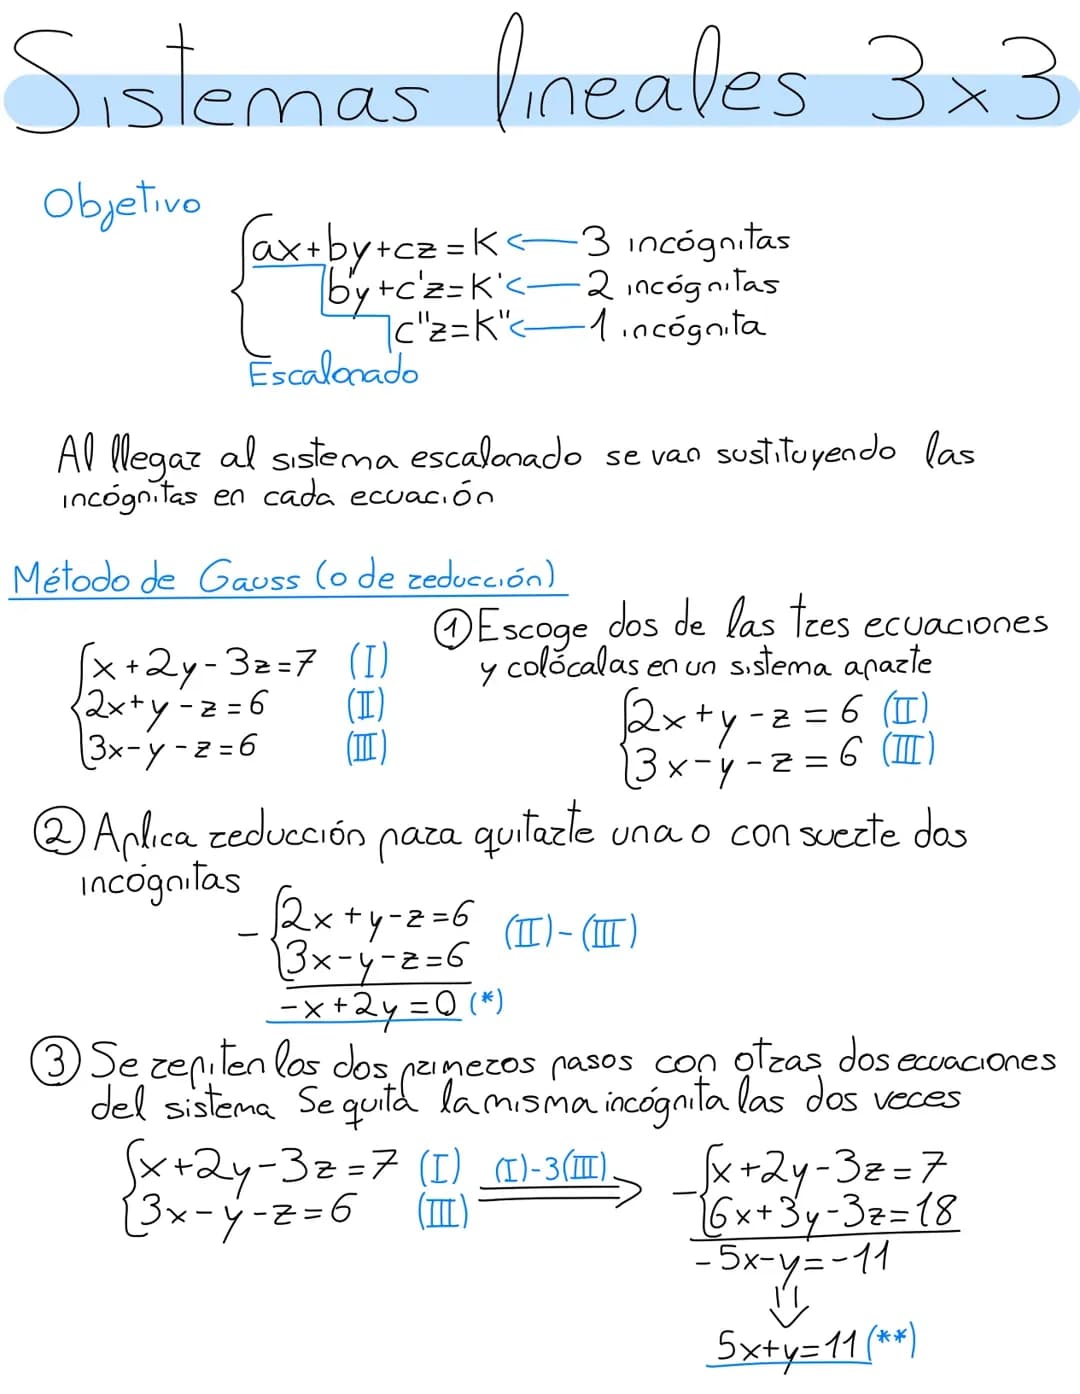 Sistemas lineales 3x3
Objetivo
ax+by+cz=K ← 3 incógnitas
b'y+c'z=K' ← 2 incógnitas
c"z=K" ← 1 incógnita
Escalonado
Al llegar al sistema escalonado se van sustituyendo las
incógnitas en cada ecuación
Método de Gauss (o de reducción)
x+2y-3z=7 (I)
2x+y-z=6 (II)
3x-y-z=6 (III)
① Escoge dos de las tres ecuaciones
y colócalas en un sistema aparte
2x+y-z=6 (II)
3x-y-z=6 (III)
② Aplica reducción para quitarte una o con suerte dos
incógnitas
- 2x+y-z=6
3x-y-z=6 (II)-(III)
-x+2y=0 (*)
③ Se repiten los dos primeros pasos con otras dos ecuaciones
del sistema Se quita la misma incógnita las dos veces
x+2y-3z=7 (I)
3x-y-z=6 (III)
(I)-3(III) ⇒
- x+2y-3z=7
6x+3y-3z=18
-5x-y=-11
⇓
5x+y=11 (**)